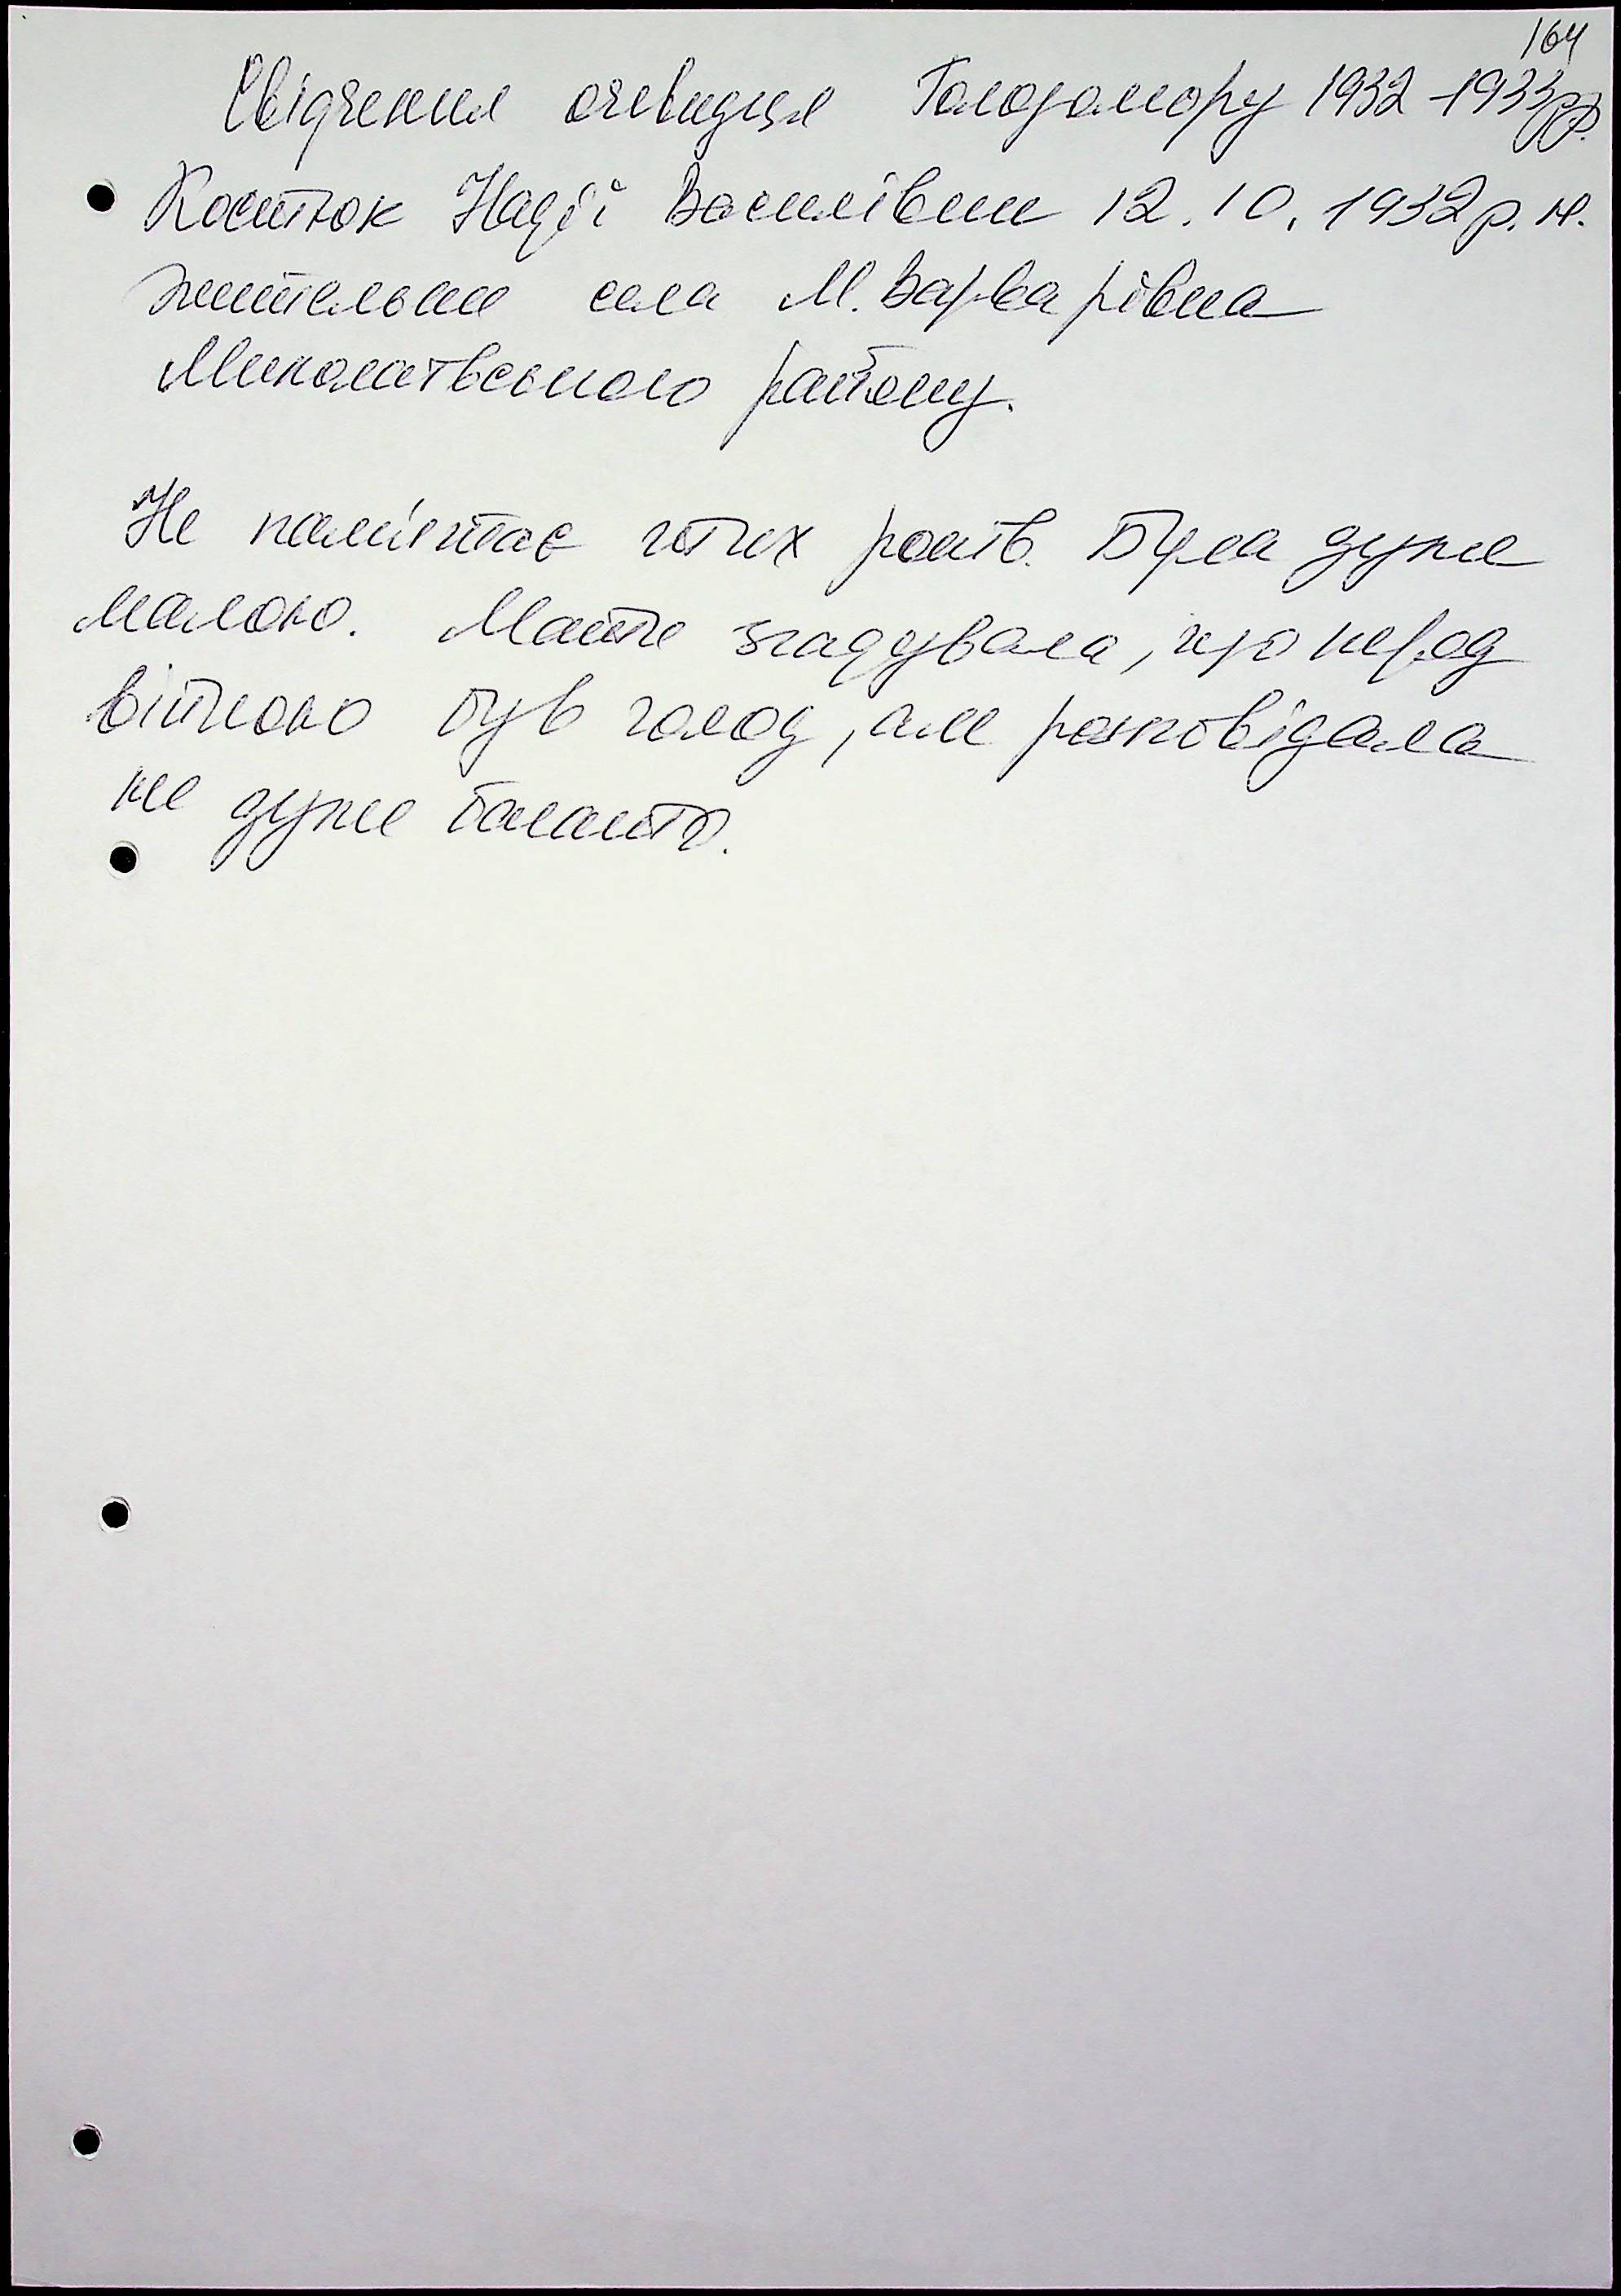 164
Свідчення очевидця Голодомору 1932-1933рр.
Костюк Надії Василівни 12.10.1932р.н.
жительки села М.Варварівка
Миколаївського району.
Не пам'ятає тих років. Була дуже
малою. Мати згадувала, що перед
війною був голод, але розповідала
не дуже багато.